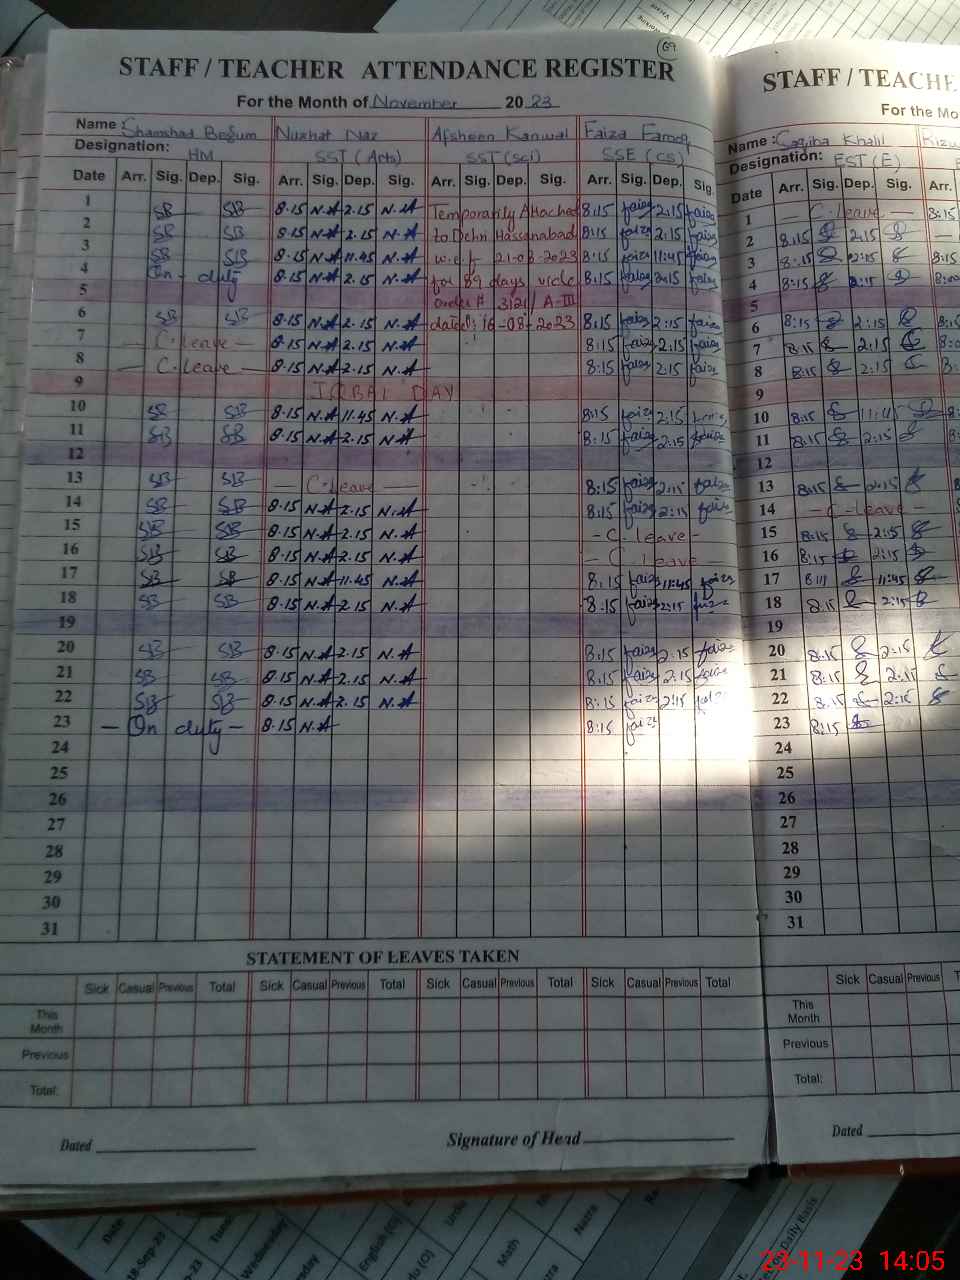 69
STAFF / TEACHER ATTENDANCE REGISTER
For the Month of November 2023
Name : Shamshad Begum Nuzhat Naz Afsheen Kanwal Faiza Farooq
Designation: HM SST (Arts) SST (Sci) SSE (CS)
Date Arr. Sig. Dep. Sig. Arr. Sig. Dep. Sig. Arr. Sig. Dep. Sig. Arr. Sig. Dep. Sig.
1 SB SB 8.15 N.A 2.15 N.A Temporarily Attached 8:15 faiza 2:15 faiza
2 SB SB 8.15 N.A 2.15 N.A to Dehri Hassanabad 8:15 faiza 2:15 faiza
3 SB SB 8.15 N.A 11.45 N.A w.e.f 21-08-2023 8:15 faiza 11:45 faiza
4 On - duty 8.15 N.A 2.15 N.A for 89 days vide 8:15 faiza 2:15 faiza
5 order # 3121 / A-III
6 SB SB 8.15 N.A 2.15 N.A dated: 16-08-2023 8:15 faiza 2:15 faiza
7 — C.leave — 8.15 N.A 2.15 N.A 8:15 faiza 2:15 faiza
8 — C.leave — 8.15 N.A 2.15 N.A 8:15 faiza 2:15 faiza
9 IQBAL DAY
10 SB SB 8.15 N.A 11.45 N.A 8:15 faiza 2:15 faiza
11 SB SB 8.15 N.A 2.15 N.A 8:15 faiza 2:15 faiza
12
13 SB SB — C.leave — 8:15 faiza 2:15 faiza
14 SB SB 8.15 N.A 2.15 N.A 8:15 faiza 2:15 faiza
15 SB SB 8.15 N.A 2.15 N.A - C.leave -
16 SB SB 8.15 N.A 2.15 N.A - C.leave -
17 SB SB 8.15 N.A 11.45 N.A 8:15 faiza 11:45 faiza
18 SB SB 8.15 N.A 2.15 N.A 8:15 faiza 2:15 faiza
19
20 SB SB 8.15 N.A 2.15 N.A 8:15 faiza 2:15 faiza
21 SB SB 8.15 N.A 2.15 N.A 8:15 faiza 2:15 faiza
22 SB SB 8.15 N.A 2.15 N.A 8:15 faiza 2:15 faiza
23 — On duty — 8.15 N.A 8:15 faiza
24
25
26
27
28
29
30
31
STATEMENT OF LEAVES TAKEN
Sick Casual Previous Total Sick Casual Previous Total Sick Casual Previous Total Sick Casual Previous Total
This Month
Previous
Total:
Dated Signature of Head
STAFF / TEACHE
For the Mo
Name : Sagiba Khalil
Designation: EST (E)
Date Arr. Sig. Dep. Sig. Arr.
1 — C.leave — 8:15
2 8:15 2:15
3 8:15 2:15 8:15
4 8:15 2:15
5
6 8:15 2:15
7 8:15 2:15
8 8:15 2:15
9
10 8:15 11:45
11 8:15 2:15
12
13 8:15 2:15
14 - C-leave -
15 8:15 2:15
16 8:15 2:15
17 11:45
18 8:15 2:15
19
20 8:15 2:15
21 8:15 2:15
22 8:15 2:15
23 8:15
24
25
26
27
28
29
30
31
Sick Casual Previous
This Month
Previous
Total:
Dated
Date
18-Sep-23
Wednesday
English (O)
Urdu
Math
Nazra
Daily Basis
23-11-23 14:05